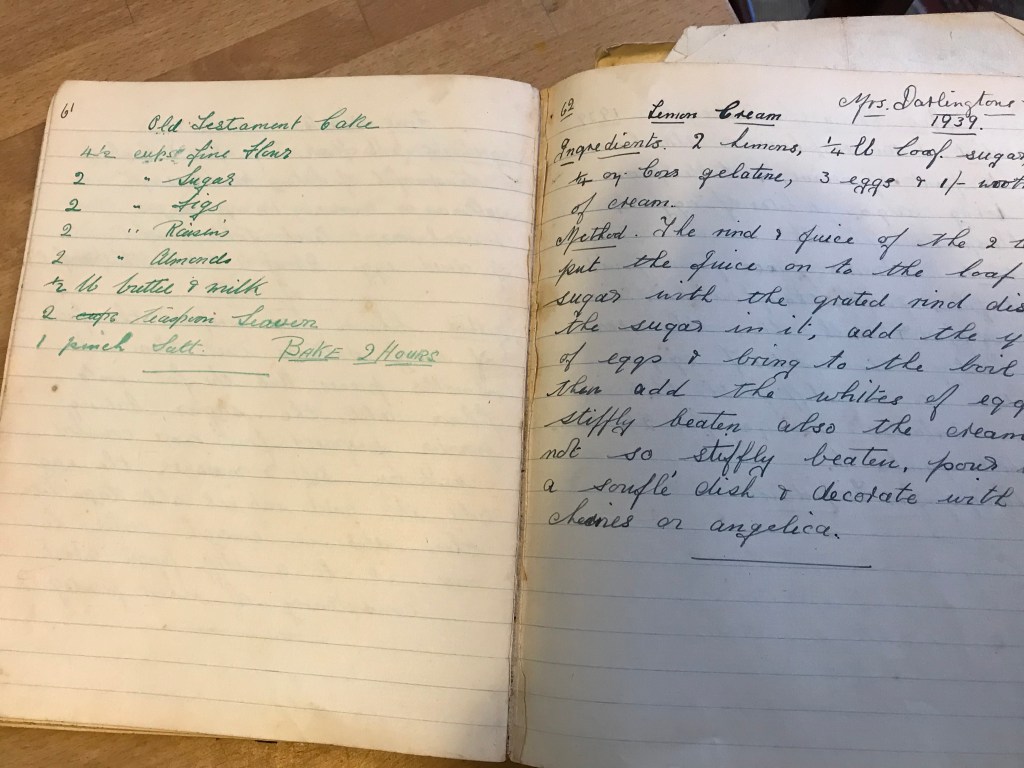 61
Old Testament Cake
4½ cups fine Flour
2 " Sugar
2 " Figs
2 " Raisins
2 " Almonds
½ lb butter & milk
2 cups Teaspoon Leaven
1 pinch Salt. BAKE 2 HOURS
62
Lemon Cream
Mrs. Darlington
1939.
Ingredients. 2 Lemons, ¼ lb loaf sugar
¼ oz Cox's gelatine, 3 eggs & 1/- worth
of cream.
Method. The rind & juice of the 2
put the juice on to the loaf
sugar with the grated rind
the sugar in it, add the
of eggs & bring to the boil
then add the whites of egg
stiffly beaten also the cream
not so stiffly beaten, pour
a souflé dish & decorate with
cherries or angelica.